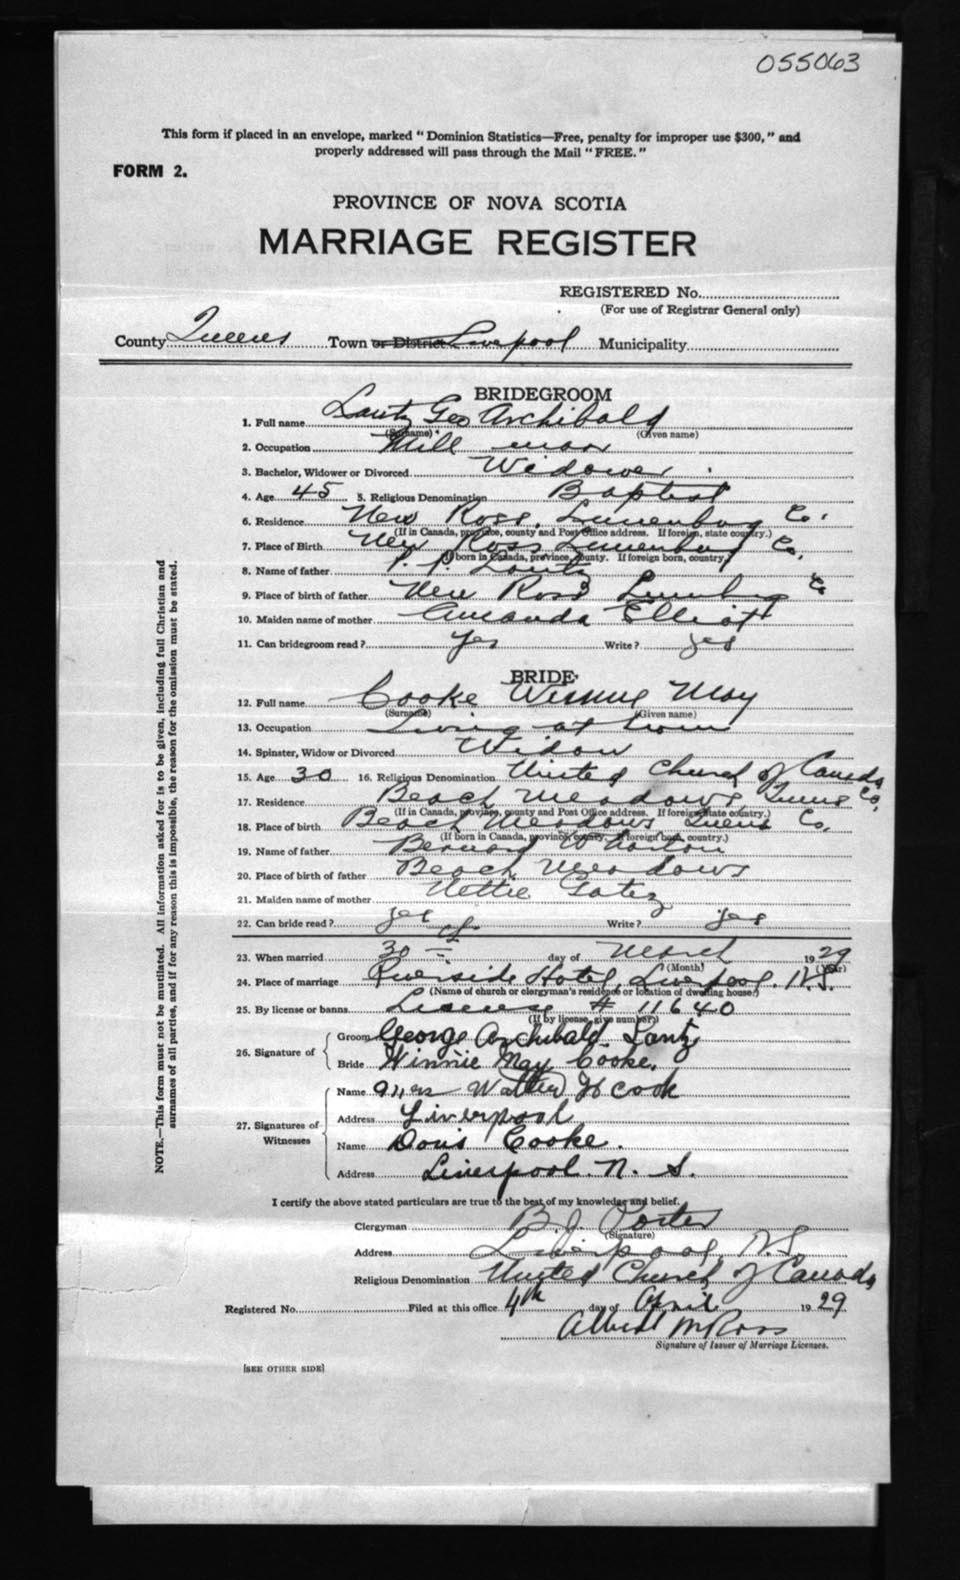 055063
This form if placed in an envelope, marked "Dominion Statistics—Free, penalty for improper use $300," and
properly addressed will pass through the Mail "FREE."
FORM 2.
PROVINCE OF NOVA SCOTIA
MARRIAGE REGISTER
REGISTERED No.
(For use of Registrar General only)
County Queens Town or District Liverpool Municipality
BRIDEGROOM
1. Full name Lantz Geo Archibald
(Surname) (Given name)
2. Occupation Mill man
3. Bachelor, Widower or Divorced Widower
4. Age 45 5. Religious Denomination Baptist
6. Residence New Ross, Lunenburg Co.
(If in Canada, province, county and Post Office address. If foreign, state country.)
7. Place of Birth New Ross Lunenburg Co.
(If born in Canada, province, county. If foreign born, country.)
8. Name of father Lantz
9. Place of birth of father New Ross Lunenburg Co
10. Maiden name of mother Amanda Elliott
11. Can bridegroom read? Yes Write? yes
BRIDE
12. Full name Cooke Winnie May
(Surname) (Given name)
13. Occupation Living at home
14. Spinster, Widow or Divorced Widow
15. Age 30 16. Religious Denomination United Church of Canada
17. Residence Beach Meadows, Queens Co.
(If in Canada, province, county and Post Office address. If foreign, state country.)
18. Place of birth Beach Meadows Queens Co.
(If born in Canada, province, county. If foreign born, country.)
19. Name of father Bernard Wharton
20. Place of birth of father Beach Meadows
21. Maiden name of mother Nettie
22. Can bride read? yes Write? yes
23. When married 30 day of March 1929
(Month) (Year)
24. Place of marriage Riverside Hotel, Liverpool, N.S.
(Name of church or clergyman's residence or location of dwelling house)
25. By license or banns License # 11640
(If by license, give number)
26. Signature of
Groom George Archibald Lantz
Bride Winnie May Cooke.
27. Signatures of Witnesses
Name Mrs Walter H Cook
Address Liverpool
Name Doris Cooke.
Address Liverpool. N. S.
I certify the above stated particulars are true to the best of my knowledge and belief.
Clergyman B. J. Porter
(Signature)
Address Liverpool, N.S.
Religious Denomination United Church of Canada
Registered No. Filed at this office 4th day of April 1929
Albert M Ross
Signature of Issuer of Marriage Licenses.
[SEE OTHER SIDE]
NOTE.—This form must not be mutilated. All information asked for is to be given, including full Christian and
surnames of all parties, and if for any reason this is impossible, the reason for the omission must be stated.